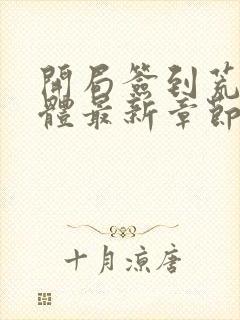 開局簽到荒
體最新章節
十月涼唐